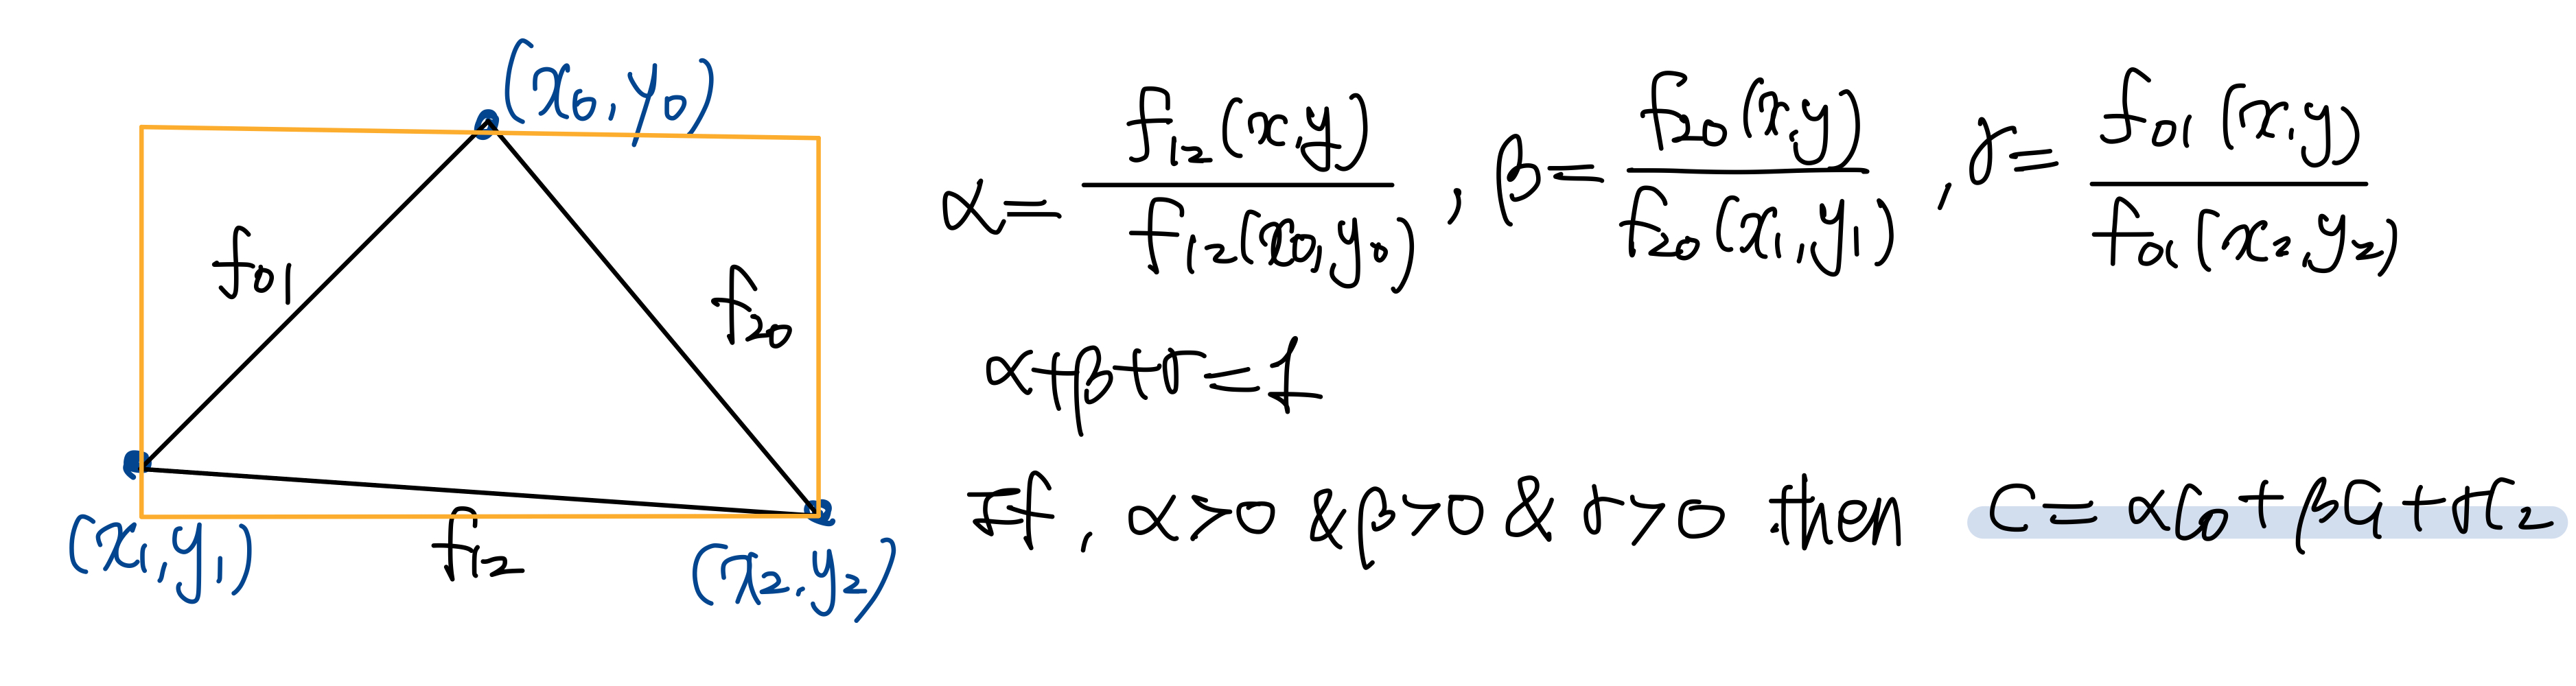 (x₀,y₀)
f₀₁
f₂₀
(x₁,y₁)
f₁₂
(x₂.y₂)
α= f₁₂(x,y) / f₁₂(x₀,y₀) , β= f₂₀(x,y) / f₂₀(x₁,y₁) , γ= f₀₁(x,y) / f₀₁(x₂,y₂)
α+β+γ=1
If, α>0 & β>0 & γ>0 then C= αC₀+βC₁+γC₂